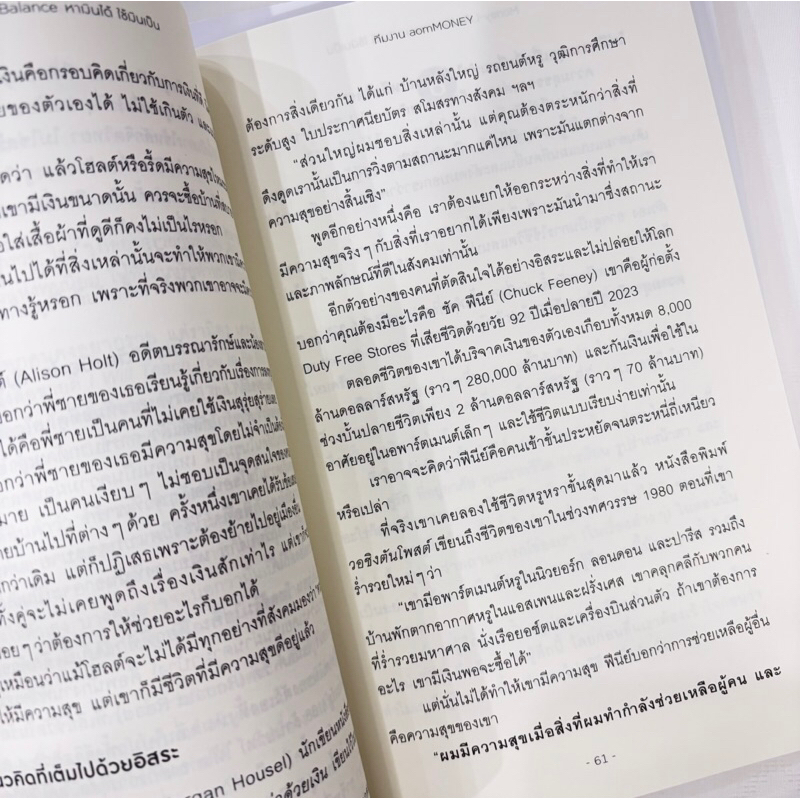 Balance หาเงินได้ ใช้เงินเป็น
เงินคือกรอบคิดเกี่ยวกับการเงินที่
ของตัวเองได้ ไม่ใช้เกินตัว
ว่า แล้วโฮลต์หรือรี้ดมีความสุข
เขามีเงินขนาดนั้น ควรจะซื้อบ้าน
ใส่เสื้อผ้าที่ดูดีก็คงไม่เป็นไรหรอก
เป็นไปได้ที่สิ่งเหล่านั้นจะทำให้พวกเขา
ทางรู้หรอก เพราะที่จริงพวกเขาอาจจะ
(Alison Holt) อดีตบรรณารักษ์และ
บอกว่าพี่ชายของเธอเรียนรู้เกี่ยวกับเรื่อง
ได้คือพี่ชายเป็นคนที่ไม่เคยใช้เงินสุรุ่ยสุร่าย
กว่าพี่ชายของเธอมีความสุขโดยไม่จำเป็น
เป็นคนเงียบๆ ไม่ชอบเป็นจุดสนใจของ
บ้านไปที่ต่างๆ ด้วย ครั้งหนึ่งเขาเคยได้รับ
กว่าเดิม แต่ก็ปฏิเสธเพราะต้องย้ายไปอยู่เมืองอื่น
ทั้งคู่จะไม่เคยพูดถึงเรื่องเงินสักเท่าไร แต่เขา
ว่าต้องการให้ช่วยอะไรก็บอกได้
เหมือนว่าแม้โฮลต์จะไม่ได้มีทุกอย่างที่สังคมมองว่า
ให้มีความสุข แต่เขาก็มีชีวิตที่มีความสุขดีอยู่แล้ว
แนวคิดที่เต็มไปด้วยอิสระ
(Morgan Housel) นักเขียนหนังสือ
ว่าด้วยเงิน
ทีมงาน aomMONEY
ต้องการสิ่งเดียวกัน ได้แก่ บ้านหลังใหญ่ รถยนต์หรู วุฒิการศึกษา
ระดับสูง ใบประกาศนียบัตร สโมสรทางสังคม ฯลฯ
"ส่วนใหญ่ผมชอบสิ่งเหล่านั้น แต่คุณต้องตระหนักว่าสิ่งที่
ดึงดูดเรานั้นเป็นการวิ่งตามสถานะมากแค่ไหน เพราะมันแตกต่างจาก
ความสุขอย่างสิ้นเชิง"
พูดอีกอย่างหนึ่งคือ เราต้องแยกให้ออกระหว่างสิ่งที่ทำให้เรา
มีความสุขจริงๆ กับสิ่งที่เราอยากได้เพียงเพราะมันนำมาซึ่งสถานะ
และภาพลักษณ์ที่ดีในสังคมเท่านั้น
อีกตัวอย่างของคนที่ตัดสินใจได้อย่างอิสระและไม่ปล่อยให้โลก
บอกว่าคุณต้องมีอะไรคือ ชัค ฟีนีย์ (Chuck Feeney) เขาคือผู้ก่อตั้ง
Duty Free Stores ที่เสียชีวิตด้วยวัย 92 ปีเมื่อปลายปี 2023
ตลอดชีวิตของเขาได้บริจาคเงินของตัวเองเกือบทั้งหมด 8,000
ล้านดอลลาร์สหรัฐ (ราวๆ 280,000 ล้านบาท) และกันเงินเพื่อใช้ใน
ช่วงบั้นปลายชีวิตเพียง 2 ล้านดอลลาร์สหรัฐ (ราวๆ 70 ล้านบาท)
อาศัยอยู่ในอพาร์ตเมนต์เล็กๆ และใช้ชีวิตแบบเรียบง่ายเท่านั้น
เราอาจจะคิดว่าฟีนีย์คือคนเข้าขั้นประหยัดจนตระหนี่ถี่เหนียว
หรือเปล่า
ที่จริงเขาเคยลองใช้ชีวิตหรูหราขั้นสุดมาแล้ว หนังสือพิมพ์
วอชิงตันโพสต์ เขียนถึงชีวิตของเขาในช่วงทศวรรษ 1980 ตอนที่เขา
ร่ำรวยใหม่ๆ ว่า
"เขามีอพาร์ตเมนต์หรูในนิวยอร์ก ลอนดอน และปารีส รวมถึง
บ้านพักตากอากาศหรูในแอสเพนและฝรั่งเศส เขาคลุกคลีกับพวกคน
ที่ร่ำรวยมหาศาล นั่งเรือยอชต์และเครื่องบินส่วนตัว ถ้าเขาต้องการ
อะไร เขามีเงินพอจะซื้อได้"
แต่นั่นไม่ได้ทำให้เขามีความสุข ฟีนีย์บอกว่าการช่วยเหลือผู้อื่น
คือความสุขของเขา
"ผมมีความสุขเมื่อสิ่งที่ผมทำกำลังช่วยเหลือผู้คน และ
- 61 -